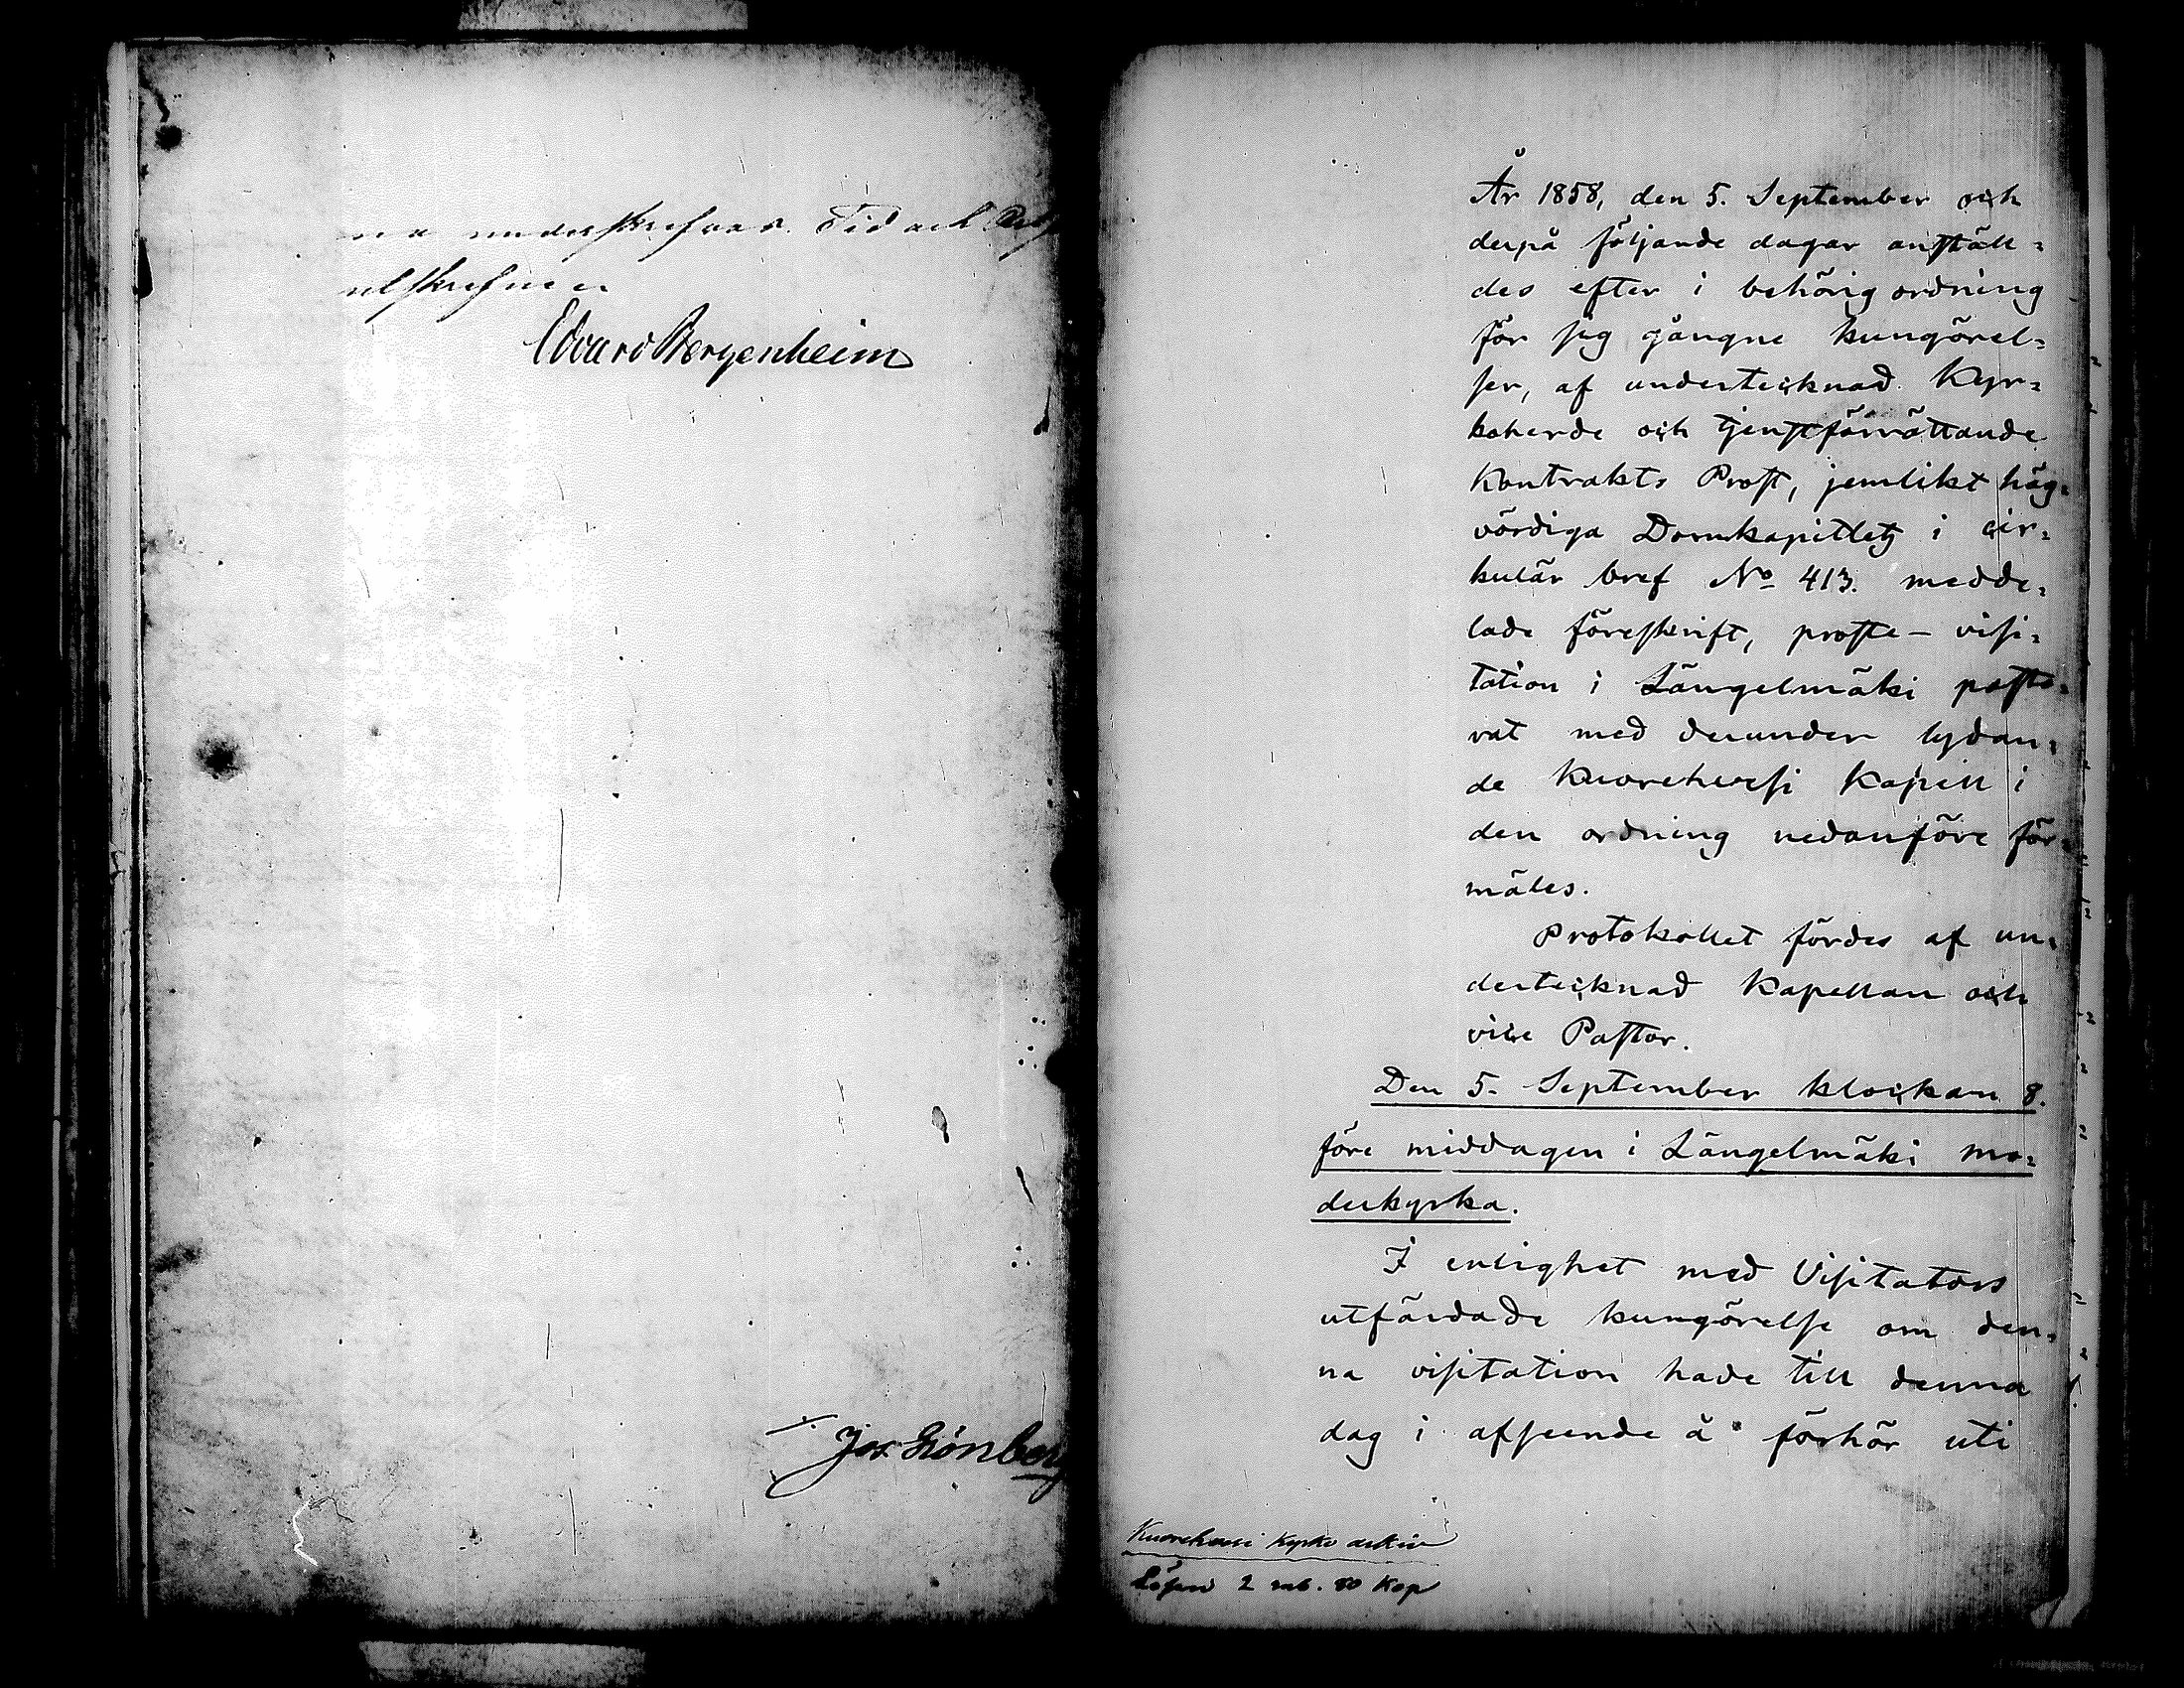 na underskrefvas. Tid och Ort
utskrefne
Edvard Bergenheim
Jos. Grönberg
År 1858, den 5. September och
derpå följande dagar anställ=
des efter i behörig ordning
för sig gångne kungörel=
ser, af undertecknad Kyr=
koherde och tjenstförrättande
Kontrakts Prost, jemlikt hög=
vördiga Domkapitlets i cir=
kulär bref No 413. medde=
lade föreskrift, proste-visi=
tation i Längelmäki pasto=
rat med derunder lydan=
de Kuorehvesi Kapell i
den ordning nedanföre för=
mäles.
Protokollet fördes af un=
dertecknad Kapellan och
vice Pastor.
Den 5. September klockan 8.
före middagen i Längelmäki mo=
derkyrka.
I enlighet med Visitators
utfärdade kungörelse om den=
na visitation hade till denna
dag i afseende å förhör uti
Kuorehvesi Kyrko arkiv
Lösen 2 rub. 80 Kop